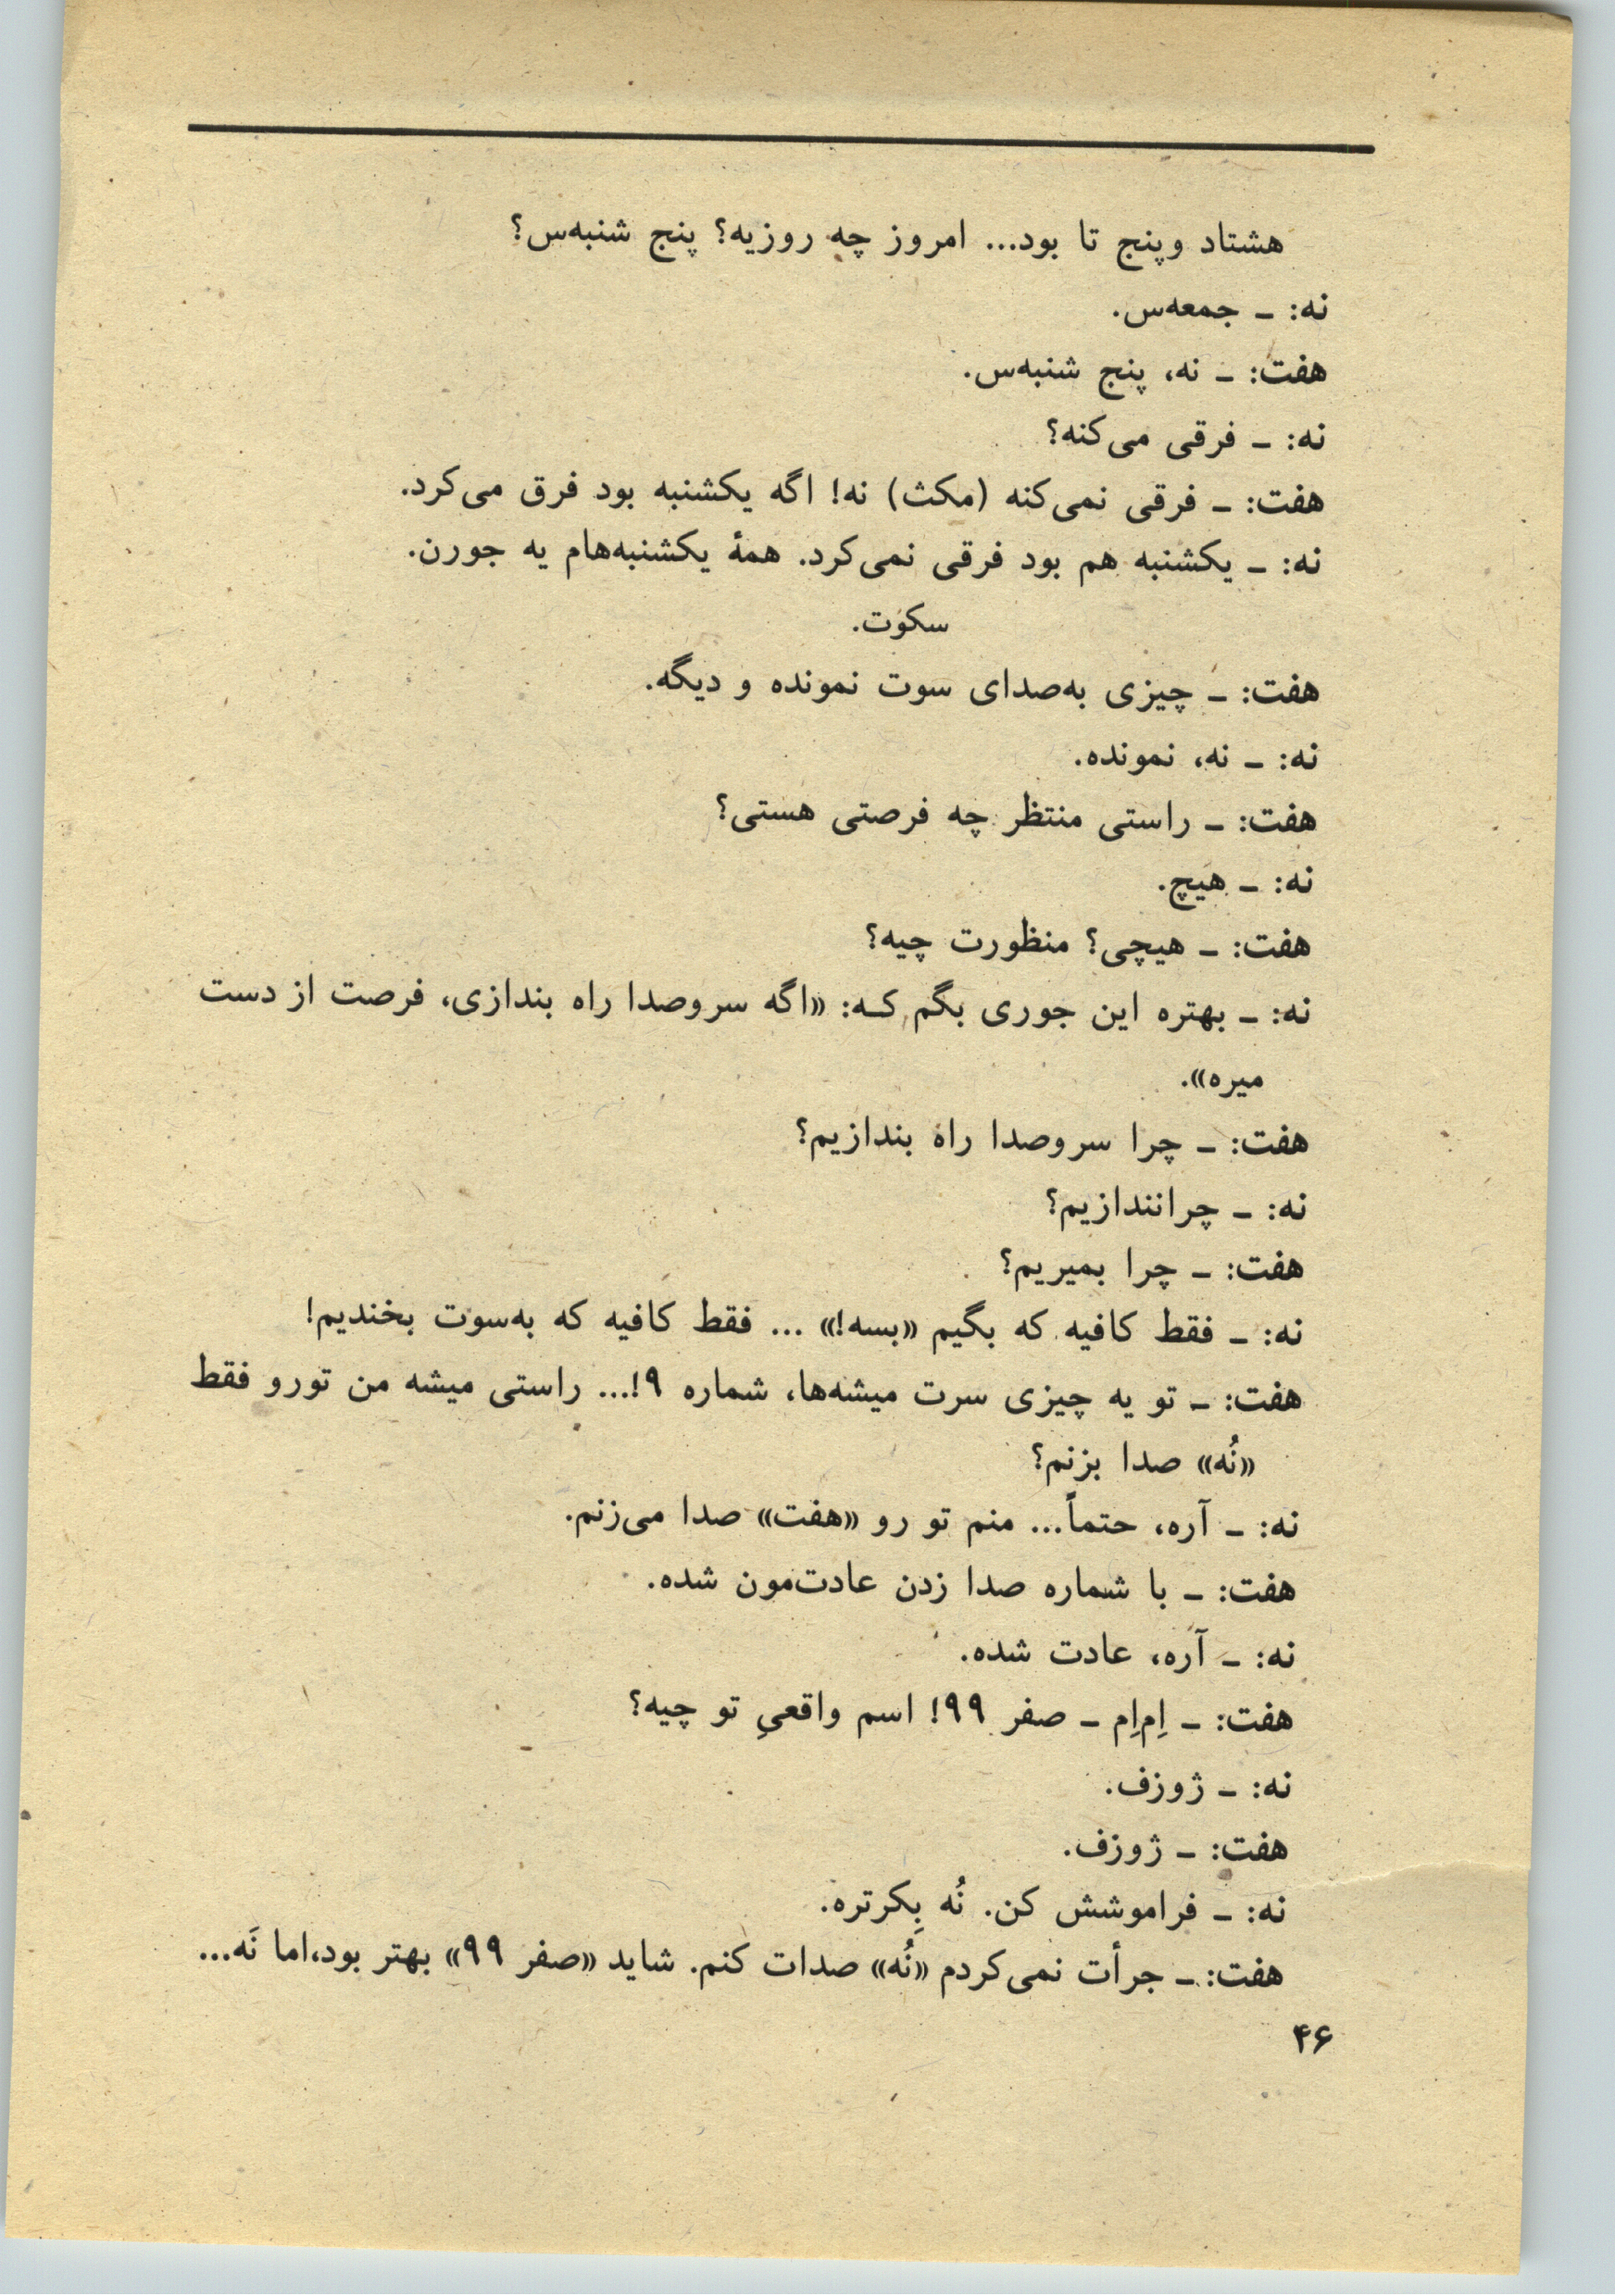 هشتاد وپنج تا بود... امروز چه روزیه؟ پنج شنبه‌س؟
نه: ـ جمعه‌س.
هفت: ـ نه، پنج شنبه‌س.
نه: ـ فرقی می‌کنه؟
هفت: ـ فرقی نمی‌کنه (مکث) نه! اگه یکشنبه بود فرق می‌کرد.
نه: ـ یکشنبه هم بود فرقی نمی‌کرد. همهٔ یکشنبه‌هام یه جورن.
سکوت.
هفت: ـ چیزی به‌صدای سوت نمونده و دیگه.
نه: ـ نه، نمونده.
هفت: ـ راستی منتظر چه فرصتی هستی؟
نه: ـ هیچ.
هفت: ـ هیچی؟ منظورت چیه؟
نه: ـ بهتره این جوری بگم کـه: «اگه سروصدا راه بندازی، فرصت از دست
میره».
هفت: ـ چرا سروصدا راه بندازیم؟
نه: ـ چرانندازیم؟
هفت: ـ چرا بمیریم؟
نه: ـ فقط کافیه که بگیم «بسه!» ... فقط کافیه که به‌سوت بخندیم!
هفت: ـ تو یه چیزی سرت میشه‌ها، شماره ۹!... راستی میشه من تورو فقط
«نُه» صدا بزنم؟
نه: ـ آره، حتماً... منم تو رو «هفت» صدا می‌زنم.
هفت: ـ با شماره صدا زدن عادت‌مون شده.
نه: ـ آره، عادت شده.
هفت: ـ اِم‌اِم ـ صفر ۹۹! اسم واقعیِ تو چیه؟
نه: ـ ژوزف.
هفت: ـ ژوزف.
نه: ـ فراموشش کن. نُه بِکرتره.
هفت: ـ جرأت نمی‌کردم «نُه» صدات کنم. شاید «صفر ۹۹» بهتر بود،اما نَه...
۴۶